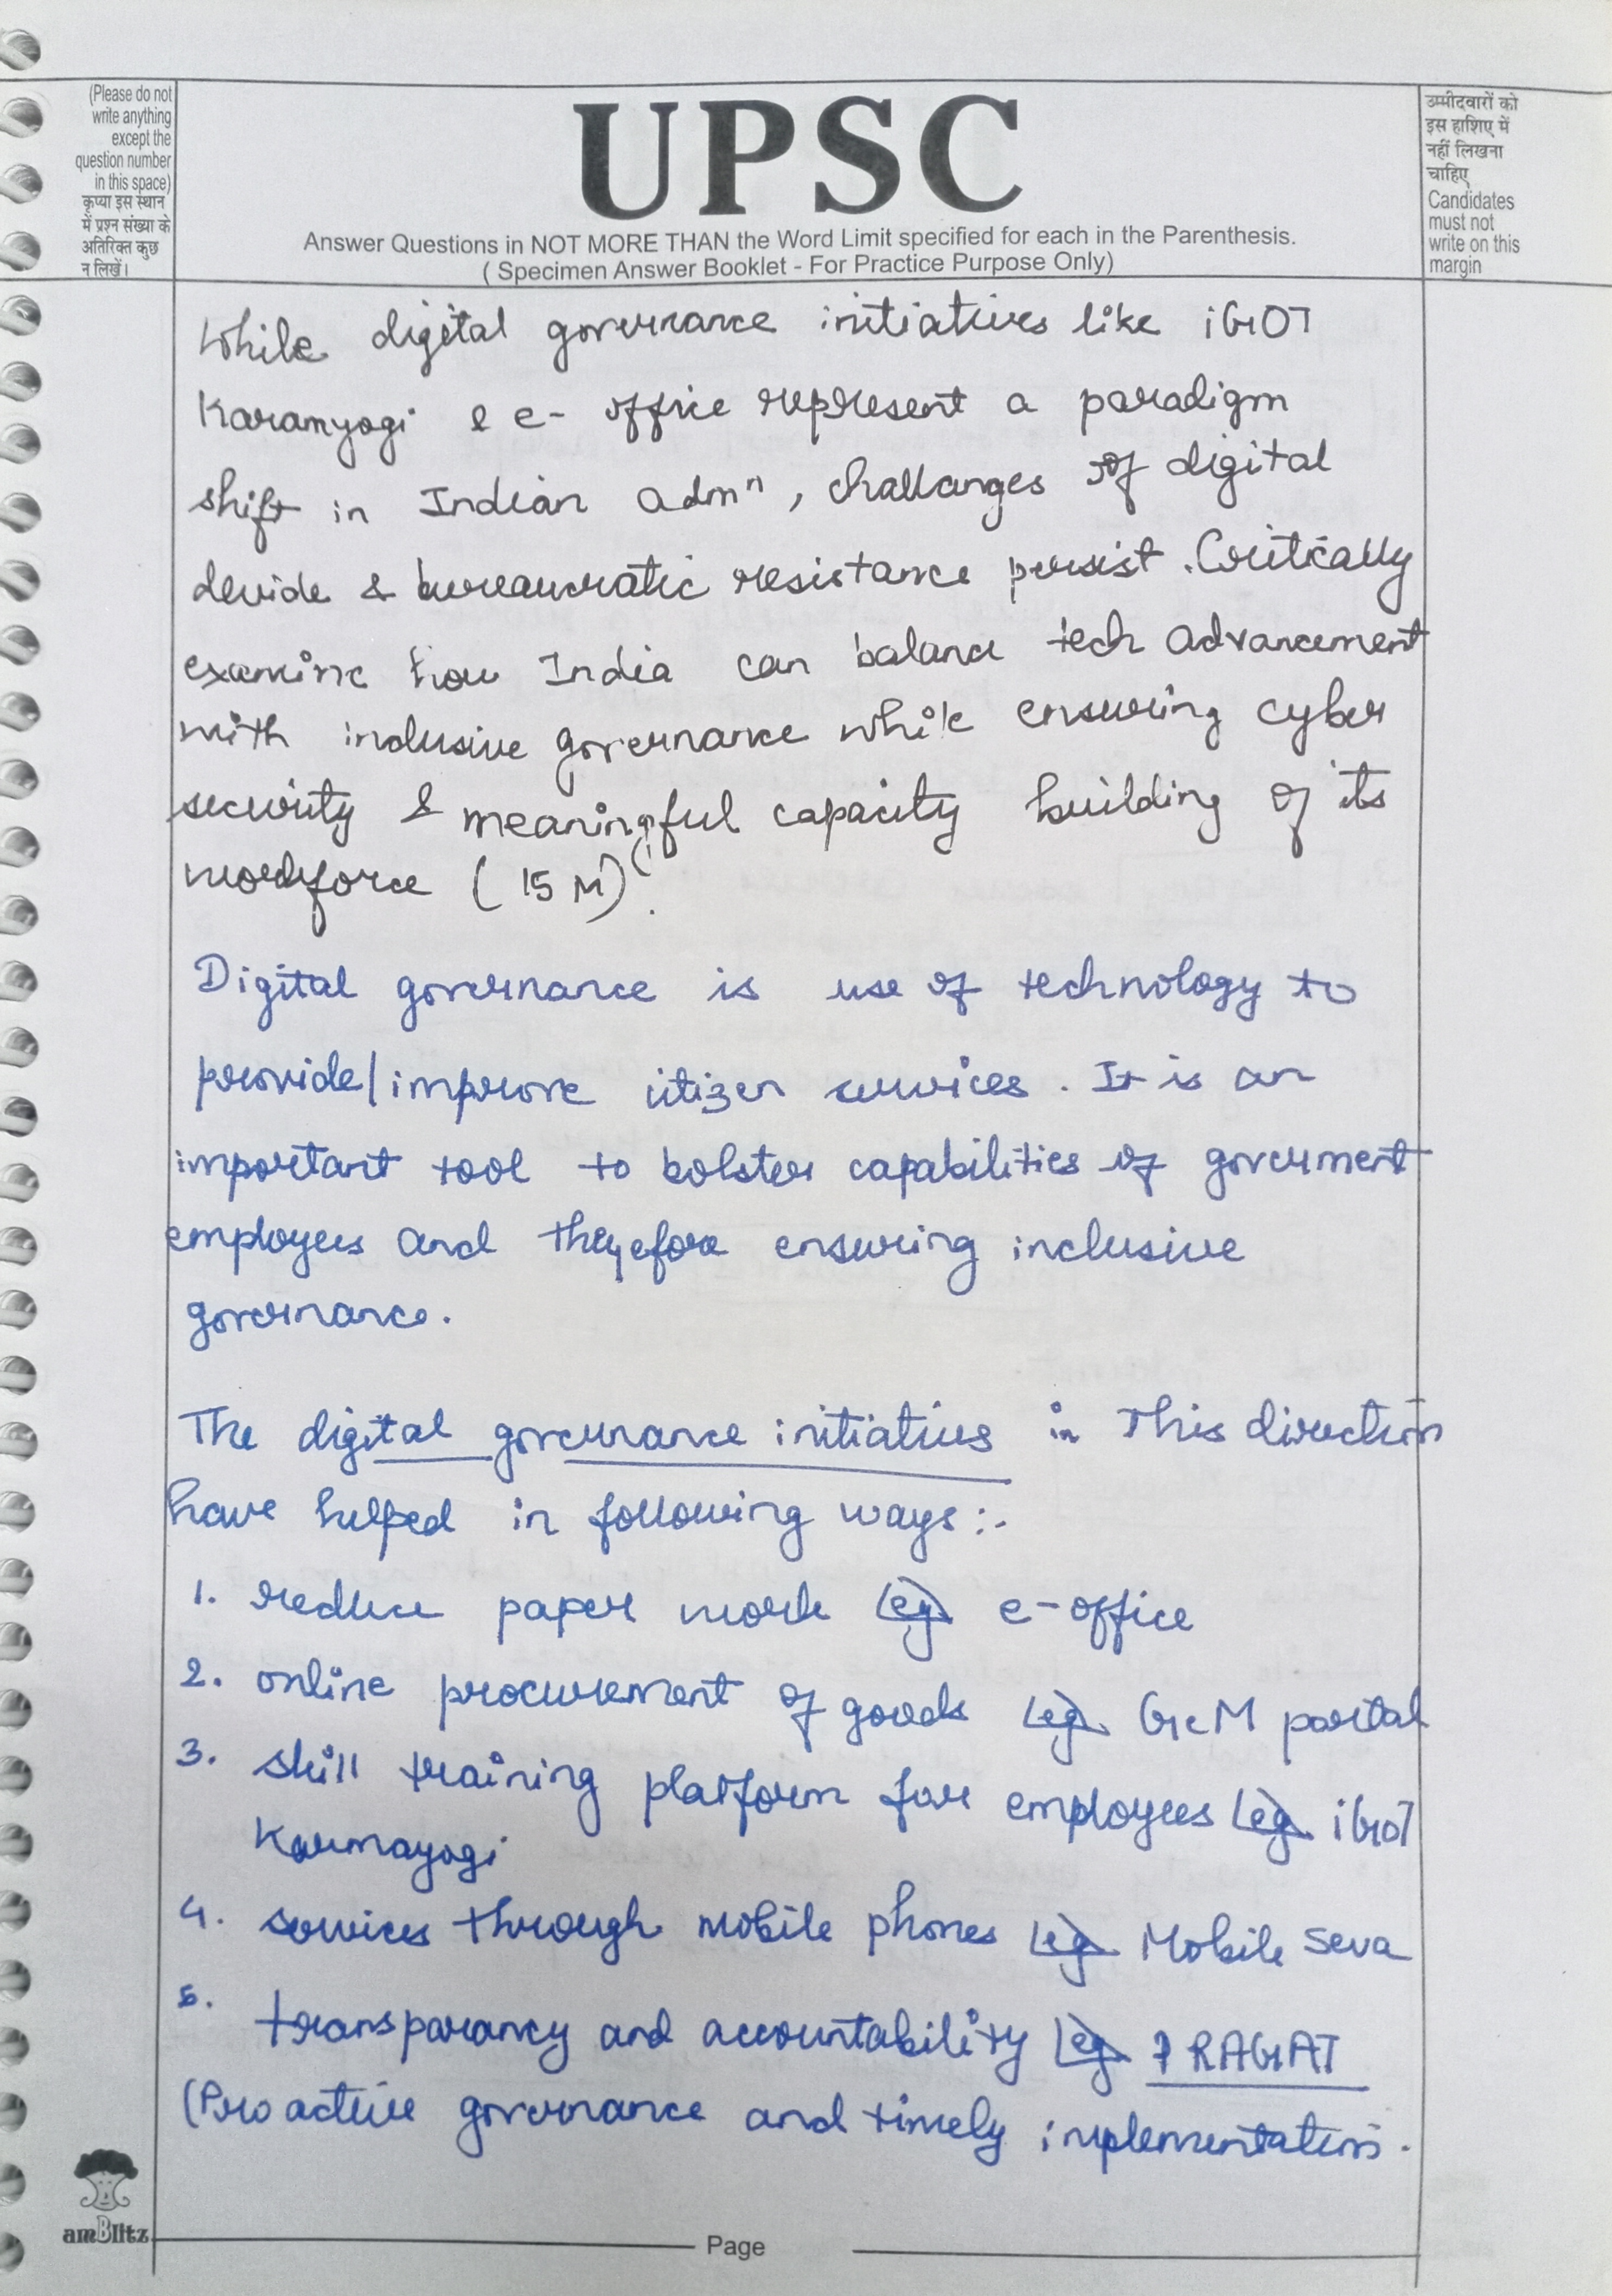 (Please do not
write anything
except the
question number
in this space)
कृप्या इस स्थान
में प्रश्न संख्या के
अतिरिक्त कुछ
न लिखें।
UPSC
Answer Questions in NOT MORE THAN the Word Limit specified for each in the Parenthesis.
( Specimen Answer Booklet - For Practice Purpose Only)
उम्मीदवारों को
इस हाशिए में
नहीं लिखना
चाहिए
Candidates
must not
write on this
margin
While digital governance initiatives like iGOT
Karamyogi & e- office represent a paradigm
shift in Indian admⁿ, challanges of digital
devide & bureaucratic resistance persist. Critically
examine how India can balance tech advancement
with inclusive governance while ensuring cyber
security & meaningful capacity building of its
workforce (15 M).
Digital governance is use of technology to
provide/improve citizen services. It is an
important tool to bolster capabilities of government
employees and therefore ensuring inclusive
governance.
The digital governance initiatives in this direction
have helped in following ways :-
1. reduce paper work eg e-office
2. online procurement of goods eg GeM portal
3. skill training platform for employees eg iGOT
Karmayogi
4. services through mobile phones eg Mobile Seva
5. transparancy and accountability eg PRAGAT
(Pro active governance and timely implementation.
amBlitz
Page